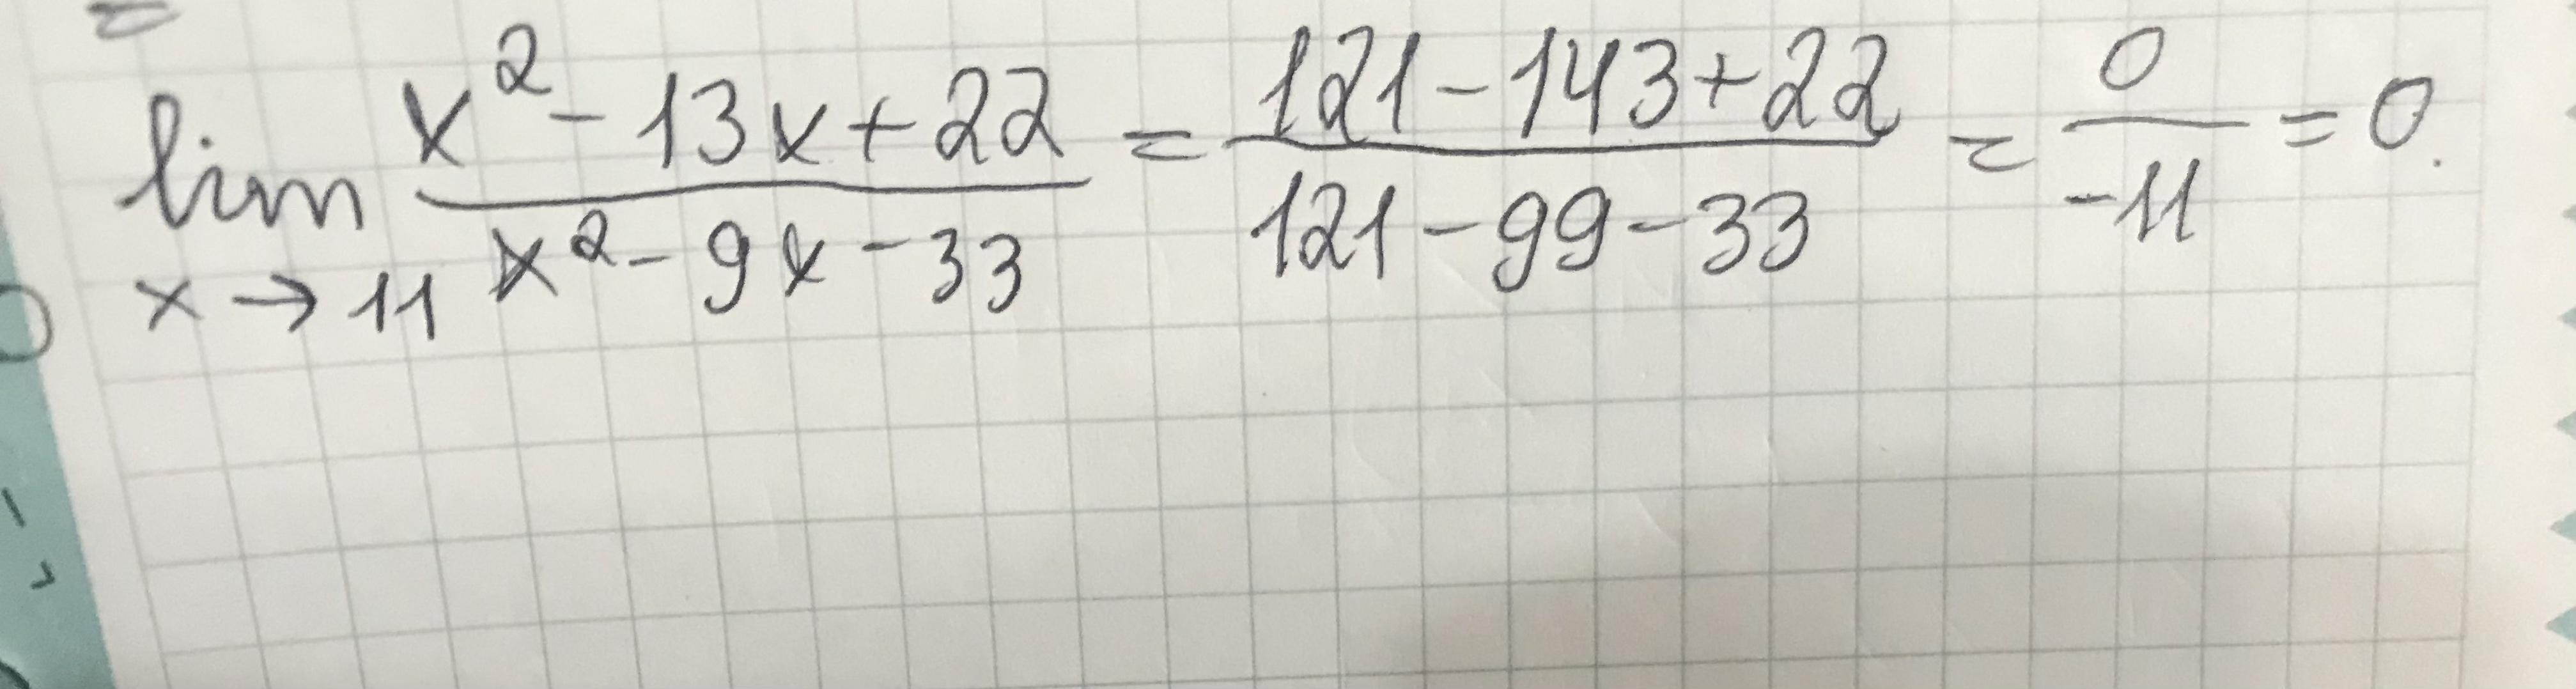 lim x→11 (x² - 13x + 22)/(x² - 9x - 33) = (121 - 143 + 22)/(121 - 99 - 33) = 0/-11 = 0.